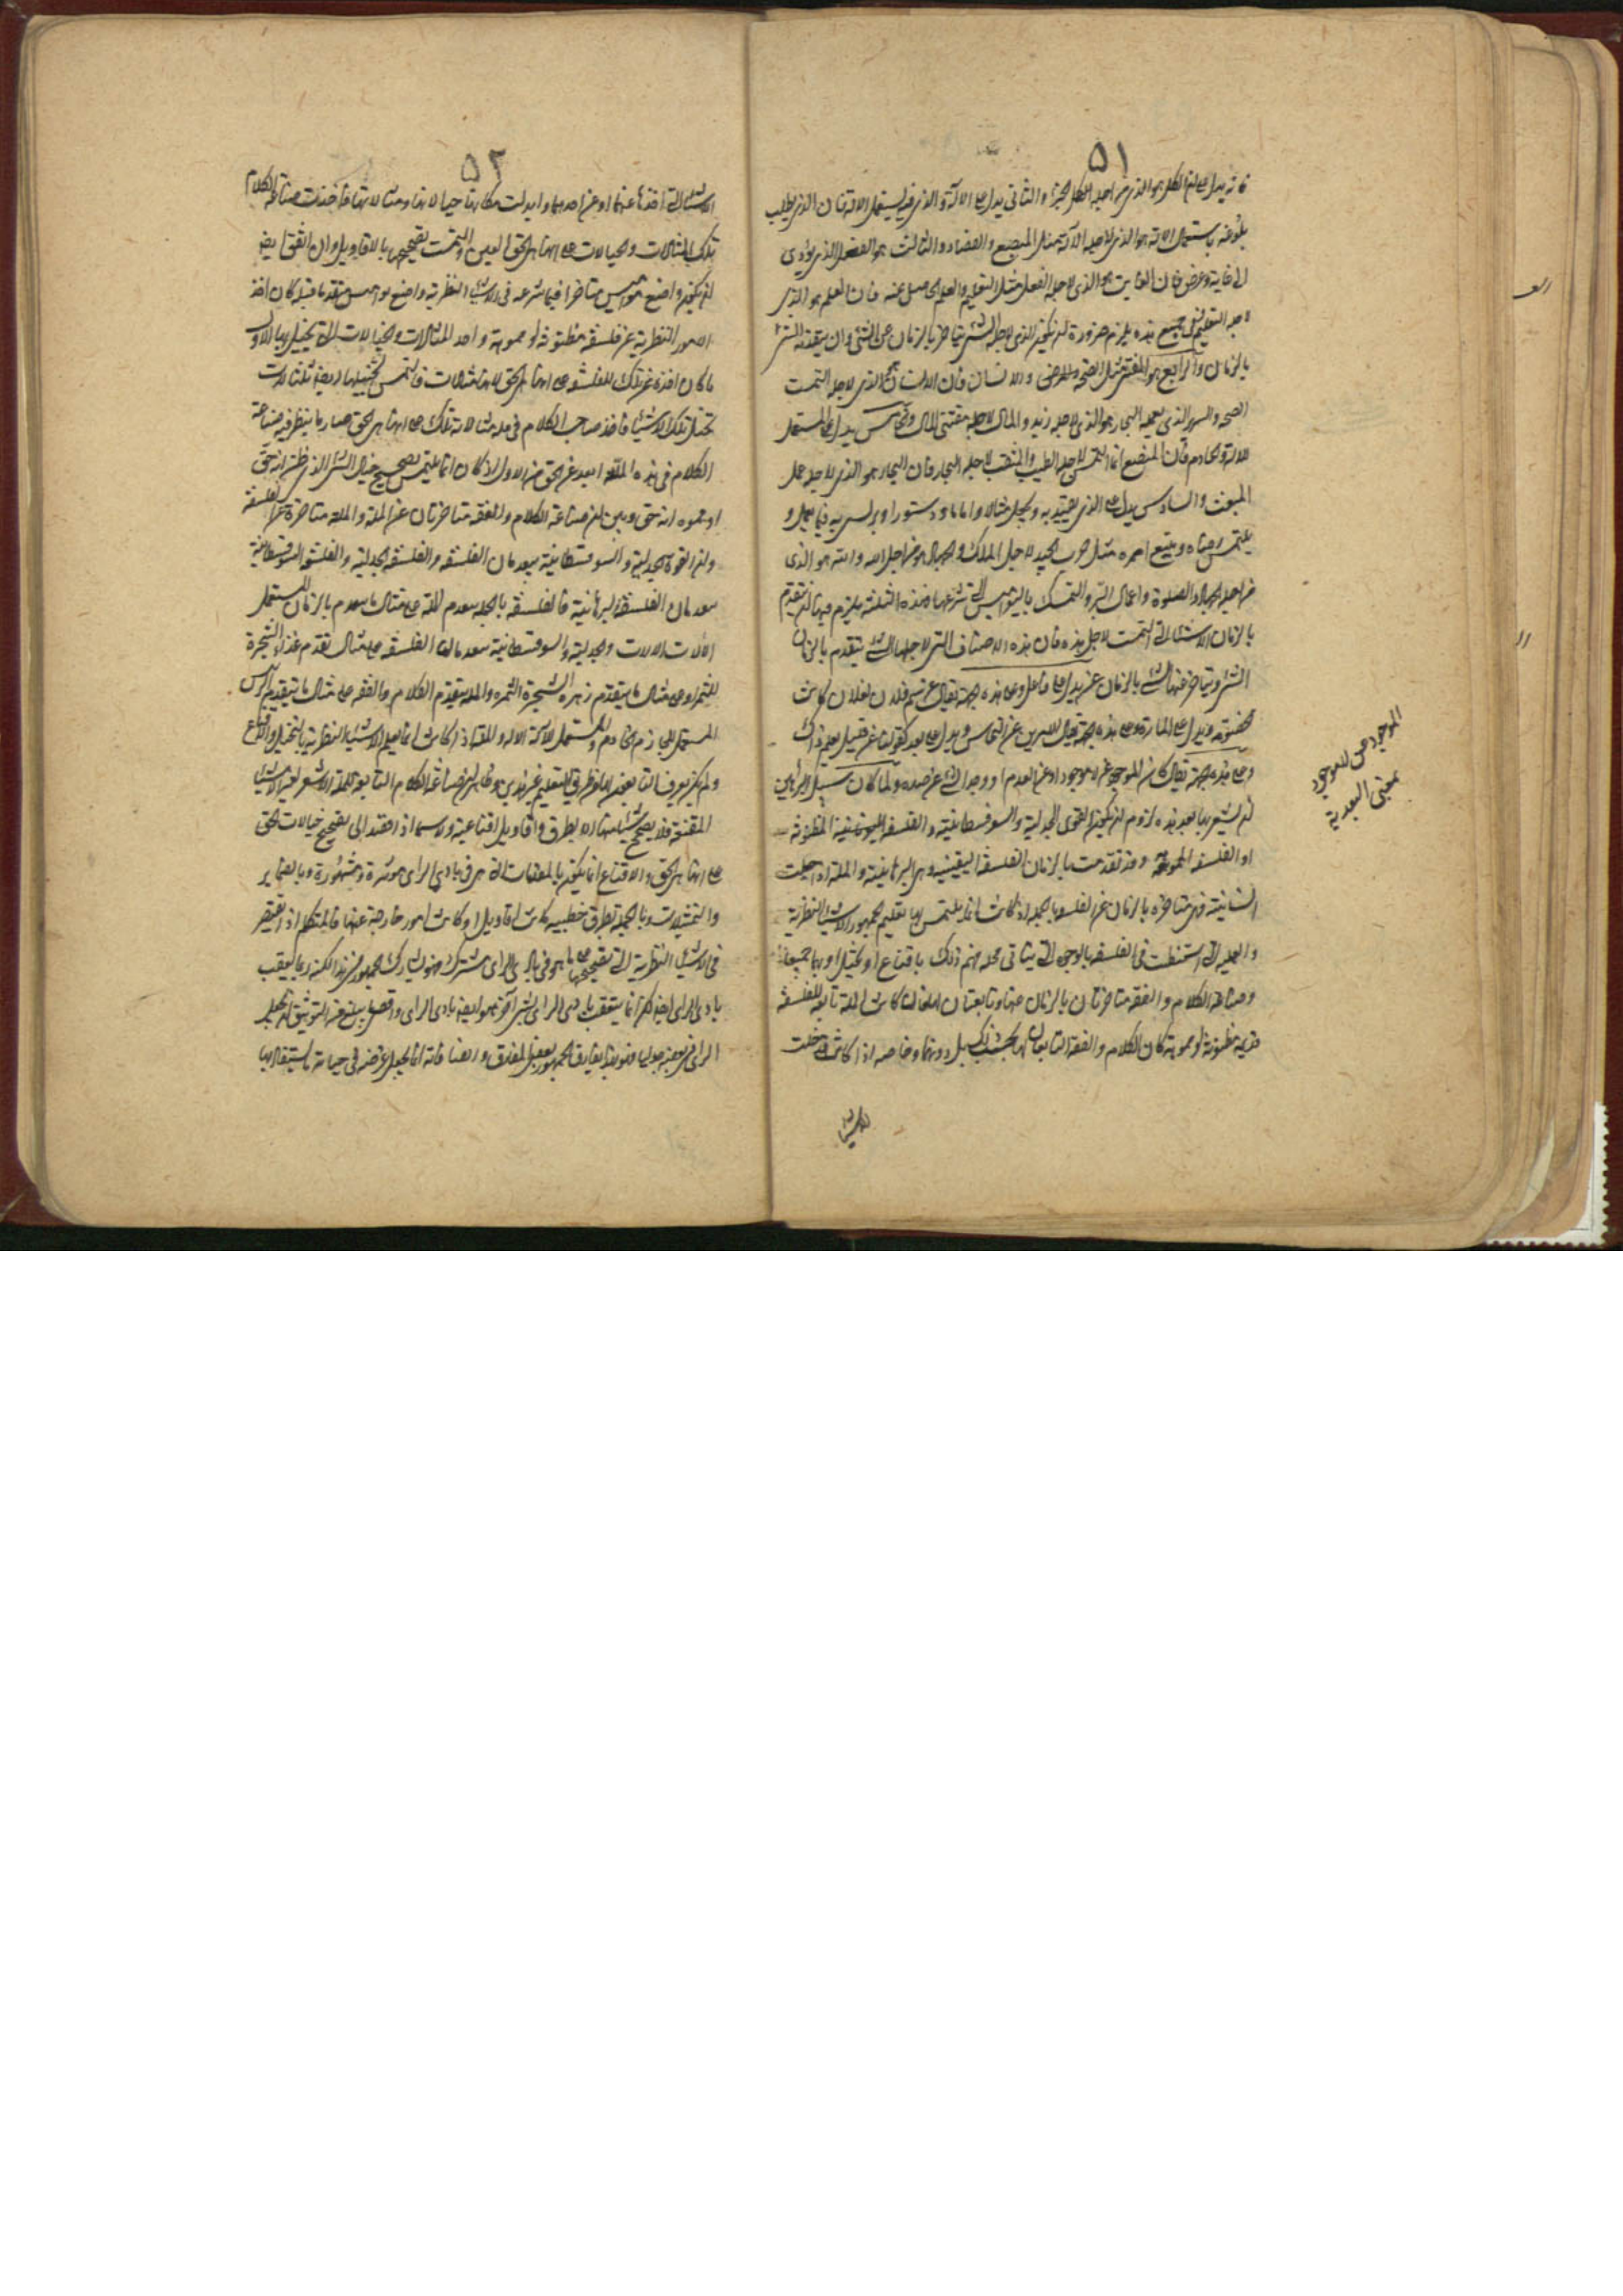 ٥١
فانه يدل على ان الكل هو الذي من اجله الكل الجزء والثاني يدل على الالة والذي فيه يستعمل الالة فان الذي يطلب
بلوغه باستعمال الالة هو الذي لاجله الالة مثل المبضع والفصاد والثالث هو الفعل الذي يؤدى
الى غاية وغرض فان الغاية هو الذي لاجله الفعل مثل التعليم والعلم الحاصل عنه فان العلم هو الذي
لاجله التعليم ففي جميع هذه يلزم ضرورة ان يكون الذي لاجله الشئ يتاخر بالزمان عن الشئ وان يتقدمه الشئ
بالزمان والرابع هو المقتني مثل الصحة والمرضى والانسان فان الانسان هو الذي لاجله التمست
الصحة والسرير الذي يعمله النجار هو الذي لاجله زيد والمال لاجله مقتني المال والخامس يدل على المستعمل
للالة والخادم فان المبضع انما التمس لاجله الطبيب والمثقب لاجله النجار فان النجار هو الذي لاجله عمل
المثقب والسادس يدل على الذي يقتدى به ويجعل مثالا واماما ودستورا فيما يعمل و
يلتمس رضاه ويتبع امره مثل حرب الجند لاجل الملك والجهاد هو من اجل الله والله هو الذي
من اجله الجهاد والصلوة واعمال البر والتمسك بالنواميس التي شرعها فهذه الثلثة يلزم فيها ان يتقدم
بالزمان الاشياء التي التمست لاجل هذه فان هذه الاصناف التي لاجلها الشئ يتقدم بالزمان
الشئ ويتاخر عنها الشئ بالزمان عن يدل على فاعل وعلى هذه الجهة يقال عن شتم فلان لفلان كانت
الخصومة ويدل على المادة وعلى هذه الجهة يقال الابريق عن النحاس ويدل على بعد كقولنا عن قليل تعلم ذاك
وعلى هذه الجهة يقال كان الموجود عن لا موجود او عن العدم او وجد الشئ عن ضده ولما كان سبيل البراهين
ان يشعر بها بعد هذه لزم ان يكون القوى الجدلية والسوفسطائية والفلسفة المظنونة
او الفلسفة المموهة وقد تقدمت بالزمان الفلسفة اليقينية وهي البرهانية والملة اذا جعلت
انسانية فهي متاخرة بالزمان عن الفلسفة وبالجملة اذ كانت انما يلتمس بها تعليم الجمهور الاشياء النظرية
والعملية التي استنبطت في الفلسفة بالوجوه التي يتاتى لهم فهم ذلك باقناع او تخييل او بهما جميعا
وصناعة الكلام والفقه متاخرتان بالزمان عنها وتابعتان لها فان كانت الملة تابعة لفلسفة
قديمة مظنونة او مموهة كان الكلام والفقه التابعان لها بحسب ذلك بل دونهما وخاصة اذا كانت قد خلت
الاشياء
الموجود عن لا موجود
بمعنى البعدية
٥٢
الاشياء التي اخذتها عنهما او عن احدهما وابدلت مكانها خيالاتها ومثالاتها فاخذت صناعة الكلام
تلك المثالات والخيالات على انها هي الحق اليقين والتمست تصحيحها بالاقاويل وان اتفق ايضا
ان يكون واضع نواميس متاخرا فيما شرعه في الاشياء النظرية واضع نواميس متقدما قبله كان اخذ
الامور النظرية عن فلسفة مظنونة او مموهة واخذ المثالات والخيالات التي تخيل بها الاول
ما كان اخذه عن تلك الفلسفة على انها هي الحق لا انها مثالات فالتمس تخييلها ايضا بمثالات
تخيل تلك الاشياء فاخذ صاحب الكلام في ملته مثالاته تلك على انها هي الحق صار ما ينظر فيه صناعة
الكلام في هذه الملة ابعد عن الحق من الاول اذ كان انما يلتمس تصحيح خيال الشئ الذي ظن انه حق
او مموه انه حق وبين ان صناعة الكلام والفقه متاخرتان عن الملة والملة متاخرة عن الفلسفة
وان القوة الجدلية والسوفسطائية يتقدمان الفلسفة والفلسفة الجدلية والفلسفة السوفسطائية
يتقدمان الفلسفة البرهانية فالفلسفة بالجملة تتقدم الملة على مثال ما يتقدم بالزمان المستعمل
الآلات الالات والجدلية والسوفسطائية تتقدمان الفلسفة على مثال تقدم غذاء الشجرة
للثمرة او على مثال ما يتقدم زهرة الشجرة الثمرة والملة تتقدم الكلام والفقه على مثال ما يتقدم الرئيس
المستعمل للخادم الخادم والمستعمل للآلة الالة والملة اذ كانت انما تعلم الاشياء النظرية بالتخييل والاقناع
ولم يكن يعرف التابعون لها من طرق التعليم غير هذين فظاهر ان صناعة الكلام التابعة للملة لا تشعر بغير الاشياء
المقنعة ولا تصحح شيئا منها الا بطرق واقاويل اقناعية ولا سيما اذا قصد الى تصحيح خيالات الحق
على انها هي الحق والاقناع انما يكون بالمقدمات التي هي في بادي الراى مؤثرة ومشهورة وبالضمائر
والتمثيلات وبالجملة بطرق خطبية كانت اقاويل او كانت امورا خارجة عنها فالمتكلم اذا يقتصر
في الاشياء النظرية التي يصححها على ما هو في بادي الراى مشترك فهو يشارك الجمهور في هذا لكنه ربما يعقب
بادي الراى ايضا لكن انما يتعقب بادي الراى بشئ آخر هو ايضا بادي الراى واقصى ما يبلغ من التوثيق ان يجعل
الراى في نقضه جدليا فهو بهذا يفارق الجمهور بعض المفارقة وايضا فانه انما يجعل غرضه في حياته ما يستفاد بها